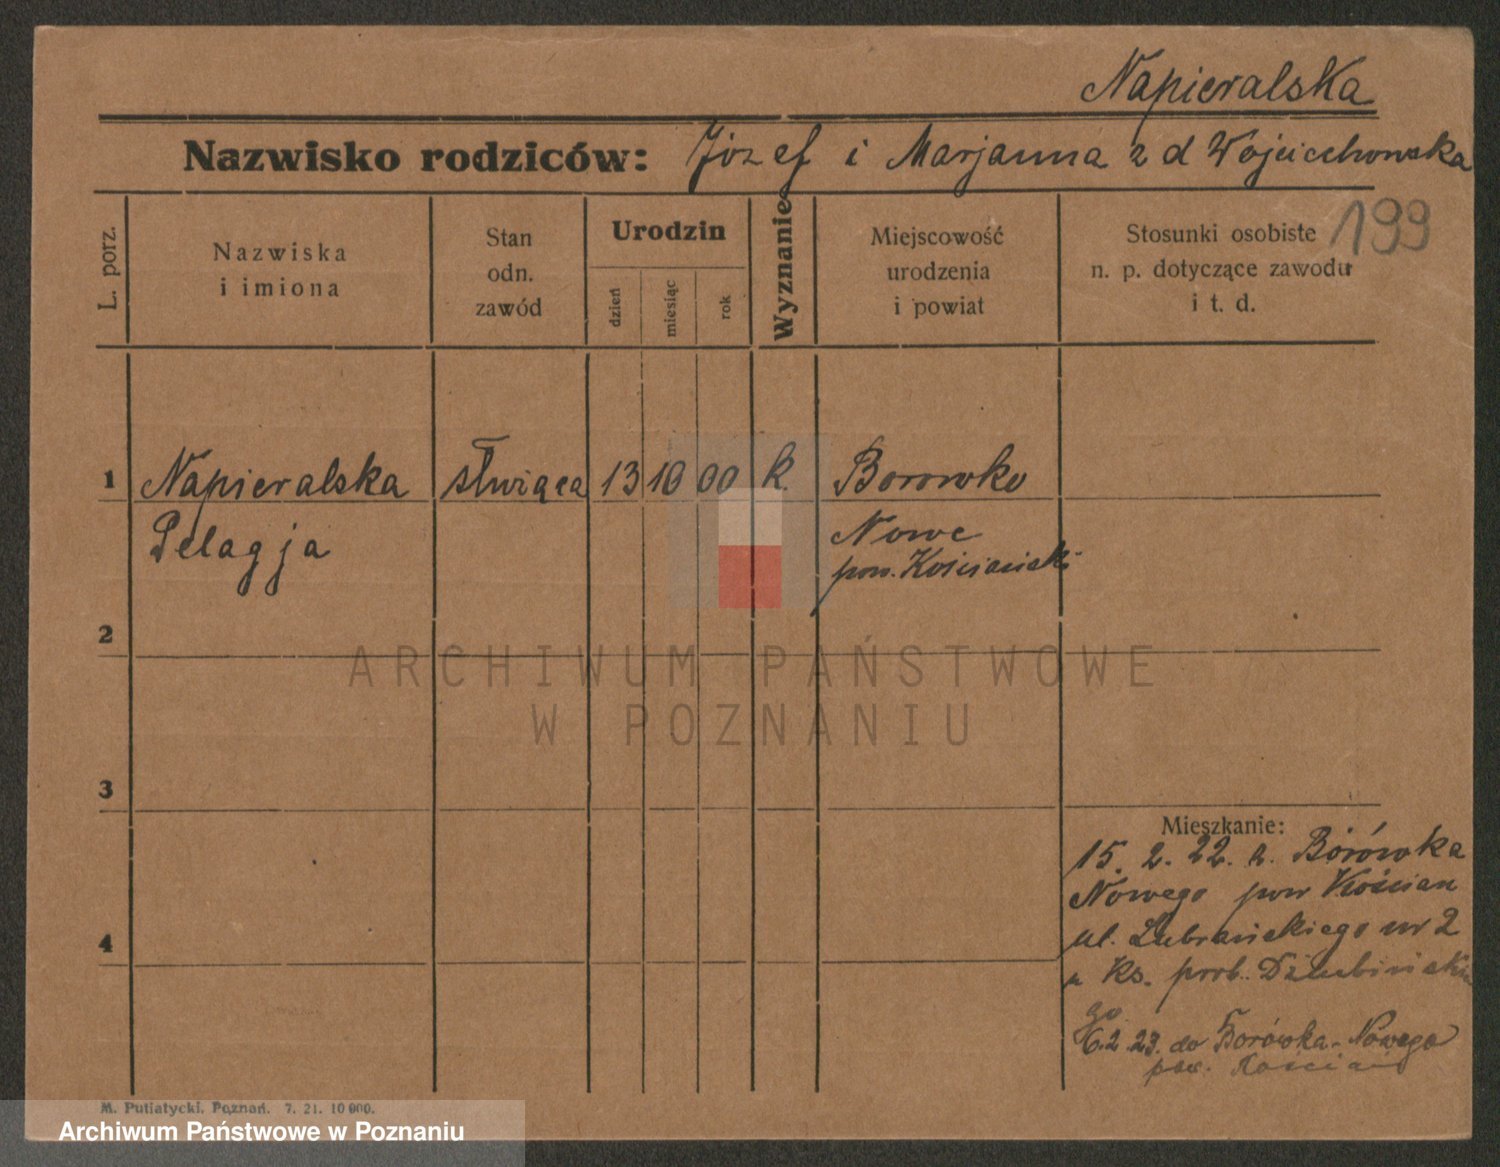 Napieralska
Nazwisko rodziców: Józef i Marjanna z d Wojciechowska
199
L. porz.
Nazwiska
i imiona
Stan
odn.
zawód
Urodzin
dzień
miesiąc
rok
Wyznanie
Miejscowość
urodzenia
i powiat
Stosunki osobiste
n. p. dotyczące zawodu
i t. d.
1 Napieralska służąca 13 10 00 k. Borowko
Pelagja
Nowe
pow. Kościański
2
ARCHIWUM PAŃSTWOWE
W POZNANIU
3
Mieszkanie:
15. 2. 22. z. Borówka
Nowego pow Kościan
ul. Lubrańskiego nr 2
u ks. prob. Dziubińskie
go
6.2.23. do Borówka-Nowego
pow. Kościan
4
M. Putiatycki, Poznań. 7. 21. 10 000.
Archiwum Państwowe w Poznaniu